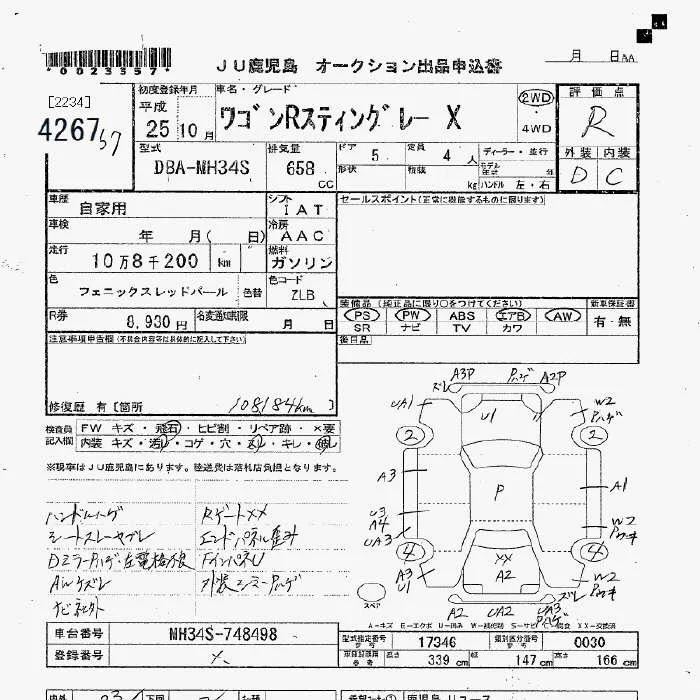 *0023357*
JU鹿児島 オークション出品申込書
月 日
[2234]
4267
57
初度登録年月
平成
25 10月
車名・グレード
ワゴンRスティングレー X
2WD
4WD
評価点
R
外装 内装
D C
型式
DBA-MH34S
排気量
658 CC
ドア 5
定員 4 人
形状
積載 kg
ディーラー・並行
モデル年式 年
ハンドル 左・右
車歴
自家用
シフト
IAT
車検
年 月( 日)
冷房
AAC
走行
10万8千200 km
燃料
ガソリン
色
フェニックスレッドパール 色替
色コード
ZLB
R券
8,930円
名変通知期限
月 日
セールスポイント(正常に機能するものに限ります)
装備品 (純正品に限り○をつけてください)
PS PW ABS エアB AW
SR ナビ TV カワ
新車保証書
有・無
後日品
注意事項申告欄(不具合内容等は具体的に記入して下さい)
修復歴 有[箇所 108184km ]
検査員記入欄
FW キズ・飛石・ヒビ割・リペア跡・×要
内装 キズ・汚レ・コゲ・穴・スレ・キレ・破レ
※現車はJU鹿児島にあります。陸送費は落札店負担となります。
ハンドルハゲ RゲートXX
シートスレヤブレ エンドパネル歪み
FインパネU
AWケズレ
ナビ社外
A3P ハゲ A2P
ズレ
UA1 U1 W2 ハゲ
2 2
A3 P A1
U3
A4
UA3
W2
4 4
A3
U1
XX
A2
W2
ズレ
A2 UA2 UA3
スペア
A-キズ E-エクボ U-凹み W-補修跡 S-サビ C-腐食 XX-交換済
車台番号 MH34S-748498
登録番号
型式指定番号 17346 類別区分番号 0030
長さ 339 cm 幅 147 cm 高さ 166 cm
鹿児島